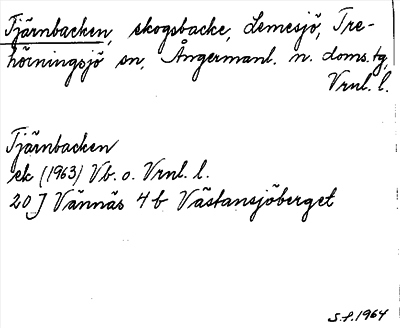 Tjärnbacken, skogsbacke, Lemesjö, Tre-
hörningsjö sn, Ångermanl. n. doms.tg,
Vrnl. l.
Tjärnbacken
ek (1963) Vb. o. Vrnl. l.
20 J Vännäs 4 b Västansjöberget
S.f. 1964